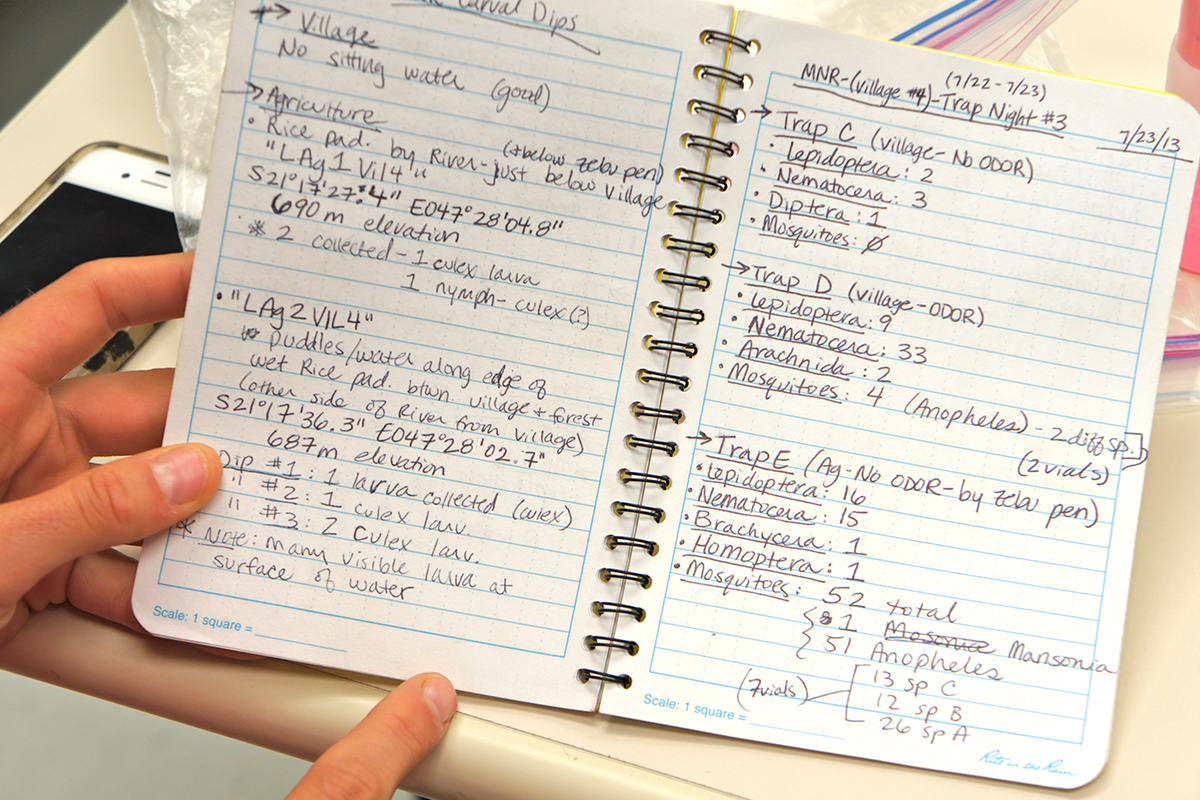 Larval Dips
→ Village
No sitting water (good)
→ Agriculture
• Rice pad. by River - just below village
(+ below zebu pen)
"LAg 1 Vil 4"
S21°17'27.4" E047°28'04.8"
690 m elevation
* 2 collected - 1 culex larva
1 nymph - culex (?)
• "LAg 2 VIL 4"
Puddles/water along edge of
wet Rice pad. btwn village + forest
(other side of River from village)
S21°17'36.3" E047°28'02.7"
687m elevation
Dip #1: 1 larva collected (culex)
" #2: 1 culex larv.
" #3: 2 Culex larv.
* Note: many visible larva at
surface of water
Scale: 1 square =
(7/22 - 7/23)
MNR-(village #4)-Trap Night #3
7/23/13
→ Trap C (village - No ODOR)
• Lepidoptera: 2
• Nematocera: 3
• Diptera: 1
• Mosquitoes: ∅
→ Trap D (village - ODOR)
• Lepidoptera: 9
• Nematocera: 33
• Arachnida: 2
• Mosquitoes: 4 (Anopheles) - 2 diff sp.
(2 vials)
→ Trap E (Ag - No ODOR - by zebu pen)
• Lepidoptera: 16
• Nematocera: 15
• Brachycera: 1
• Homoptera: 1
• Mosquitoes: 52 total
1 Mansonia
51 Anopheles
(7 vials)
13 sp C
12 sp B
26 sp A
Scale: 1 square =
Rite in the Rain